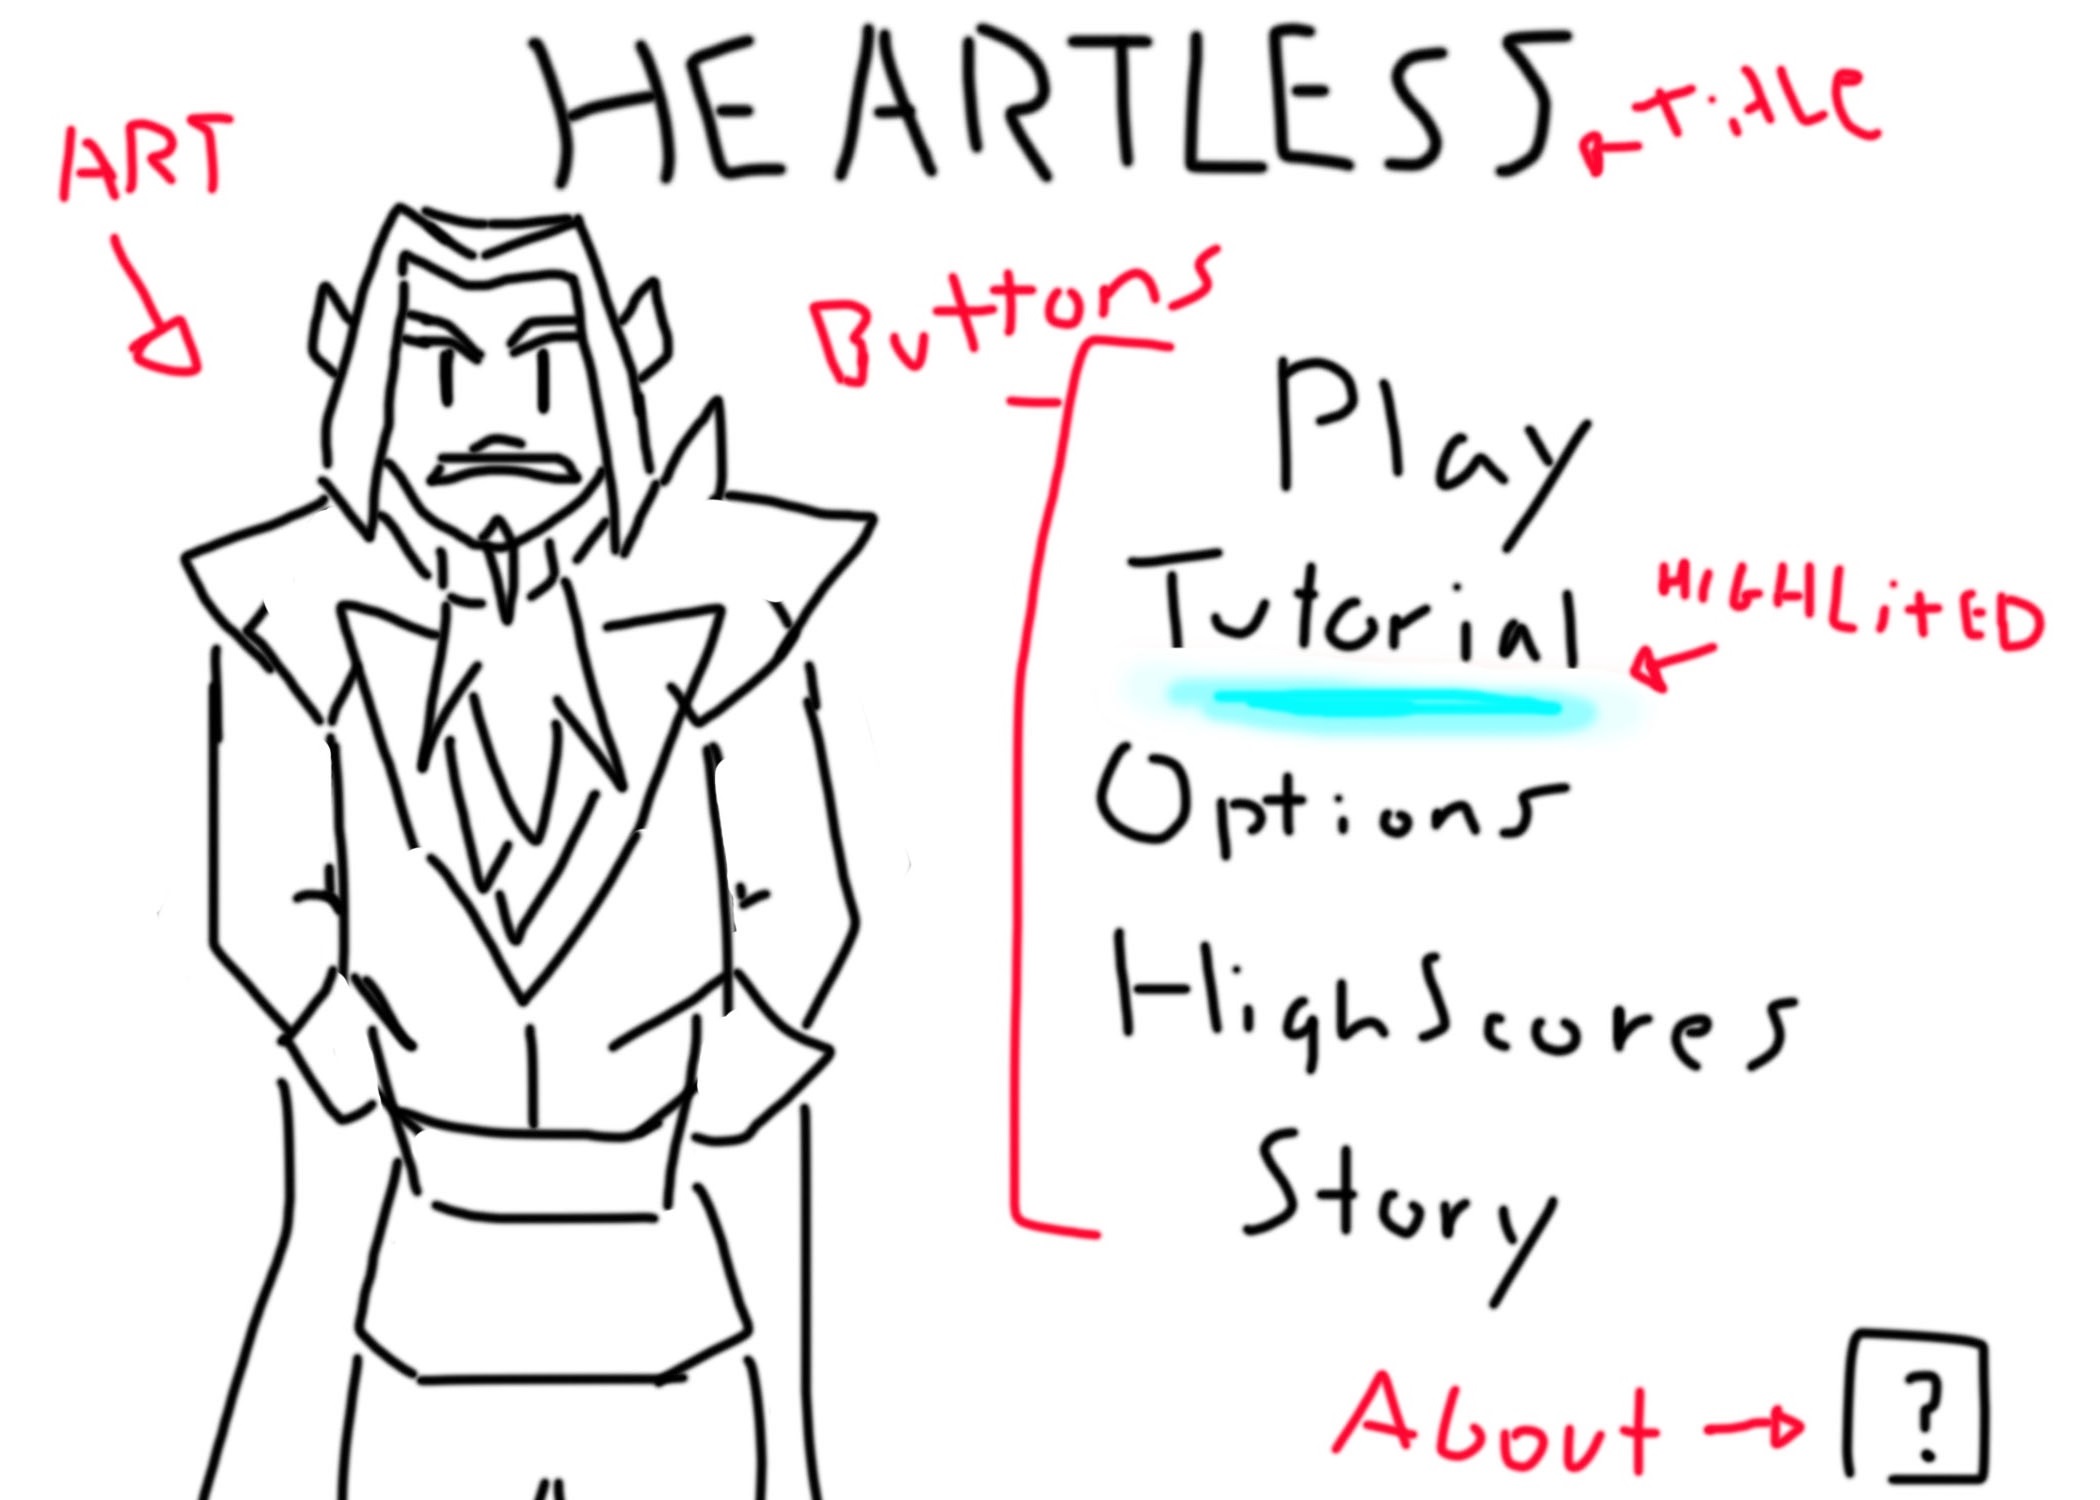 HEARTLESS
Title
ART
Buttons
Play
Tutorial
HIGHLitED
Options
HighScores
Story
About
?